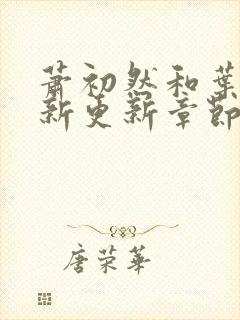 萧初然和葉
新更新章節
唐荣華